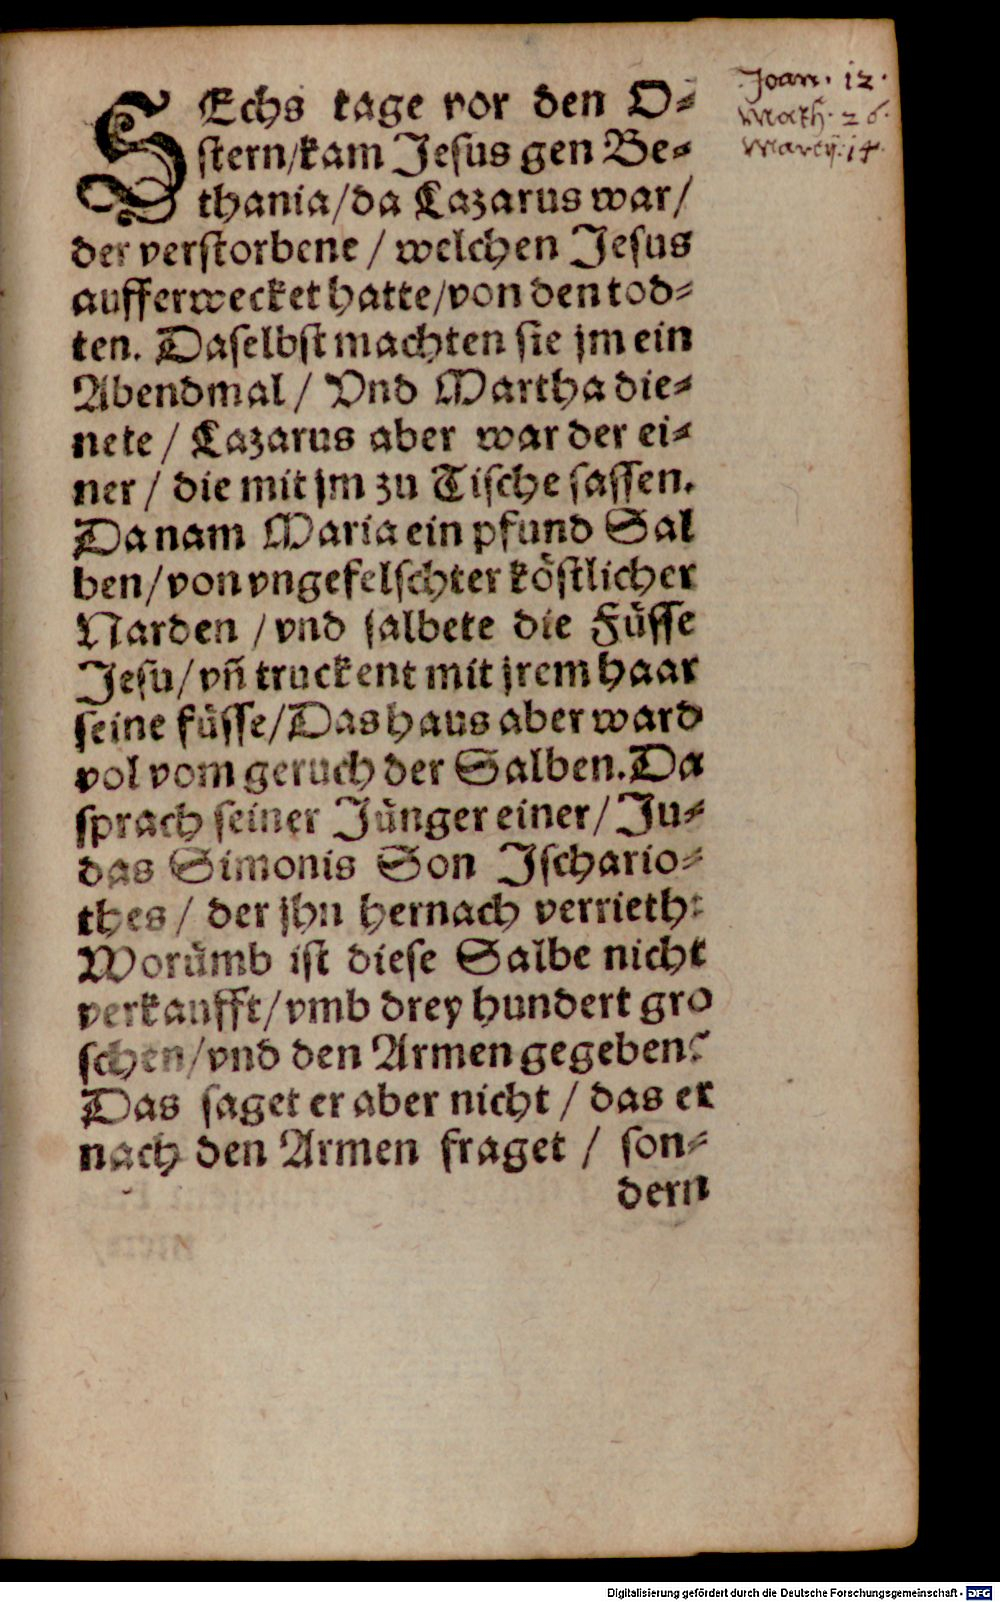 SEchs tage vor den O⸗
stern/kam Jesus gen Be⸗
thania/da Lazarus war/
der verstorbene / welchen Jesus
aufferwecket hatte/von den tod⸗
ten. Daselbst machten sie jm ein
Abendmal / Vnd Martha die⸗
nete / Lazarus aber war der ei⸗
ner / die mit jm zu Tische sassen.
Da nam Maria ein pfund Sal
ben/von vngefelschter köstlicher
Narden / vnd salbete die Füsse
Jesu/ vñ truckent mit jrem haar
seine füsse/Das haus aber ward
vol vom geruch der Salben. Da
sprach seiner Jünger einer/ Ju⸗
das Simonis Son Ischario⸗
thes / der jhn hernach verrieth:
Worümb ist diese Salbe nicht
verkaufft/vmb drey hundert gro
schen/vnd den Armen gegeben?
Das saget er aber nicht / das er
nach den Armen fraget / son⸗
dern
Joan. 12.
Math. 26.
Marcij. 14.
Digitalisierung gefördert durch die Deutsche Forschungsgemeinschaft - DFG